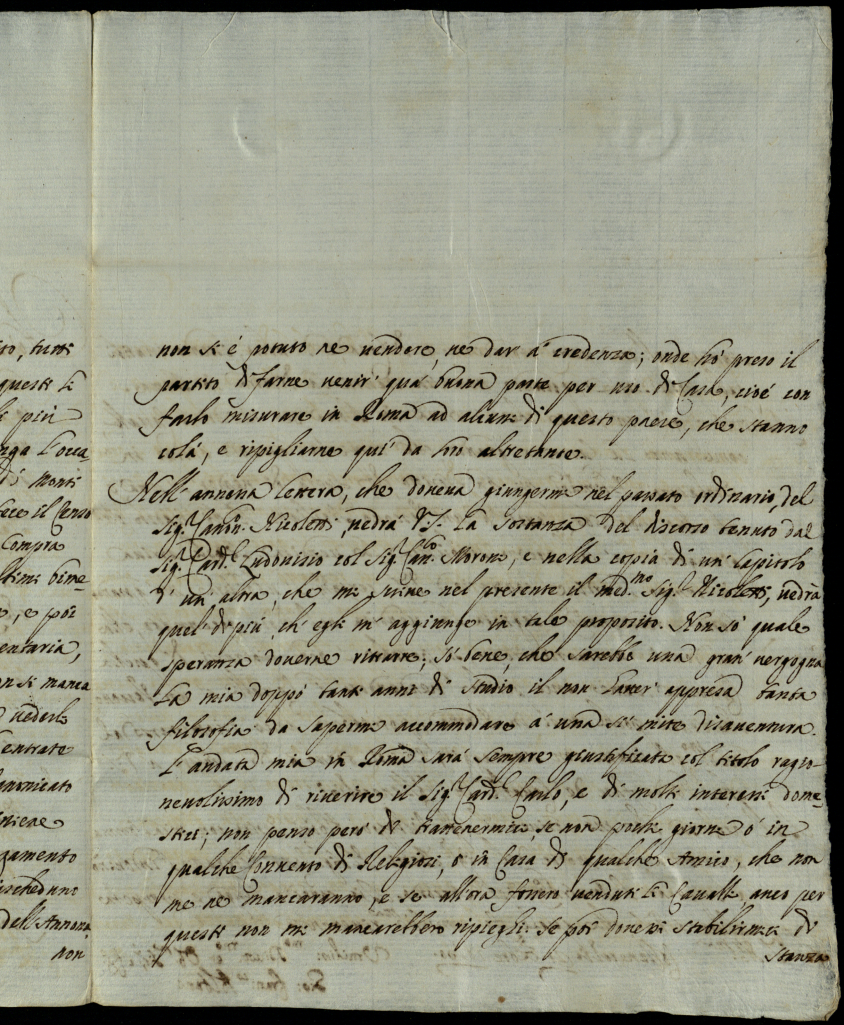 to, tutti
questi li
li più
nga l'occa
di Monti
fece il Censo
Compra
ltimi bime-
e, e poi
entaria,
on si manca
vederlo
entrate
nonicato
gamento
ischeduno
dell'Annona
non
non si è potuto ne vendere, ne dar à credenza; onde hò preso il
partito di farne venir quà buona parte per uso di Casa, cioè con
farlo misurare in Roma ad alcuni di questo paese, che stanno
colà, e ripigliarne quì da loro altretanto.
Nell'annessa lettera, che doveva giungermi nel passato ordinario, del
Sig.r Canon. Nicoletti, vedrà V.S. la sostanza del discorso tenuto dal
Sig.r Card.l Ludovisio col Sig.r Can.co Moroni, e nella copia di un Capitolo
d'un'altra, che mi scrive nel presente il med.mo Sig.r Nicoletti, vedrà
quel di più, ch'egli m'aggiunge in tale proposito. Non sò quale
speranza doverne ritrarre; sò bene, che sarebbe una gran vergogna
la mia doppò tanti anni di studio il non haver appresa tanta
filosofia da sapermi accommodare à una sì mite disaventura.
L'andata mia in Roma sarà sempre giustificata col titolo ragio-
nevolissimo di riverire il Sig.r Card.l Carlo, e di molti interessi dome-
stici; non penso però di trattenermici, se non pochi giorni ò in
qualche Convento di Religiosi, ò in Casa di qualche Amico, che non
me ne mancaranno, e se all'ora fossero venduti li Cavalli, anco per
questi non mi mancarebbero ripieghi. Se poi dovessi stabilirmici di
stanza